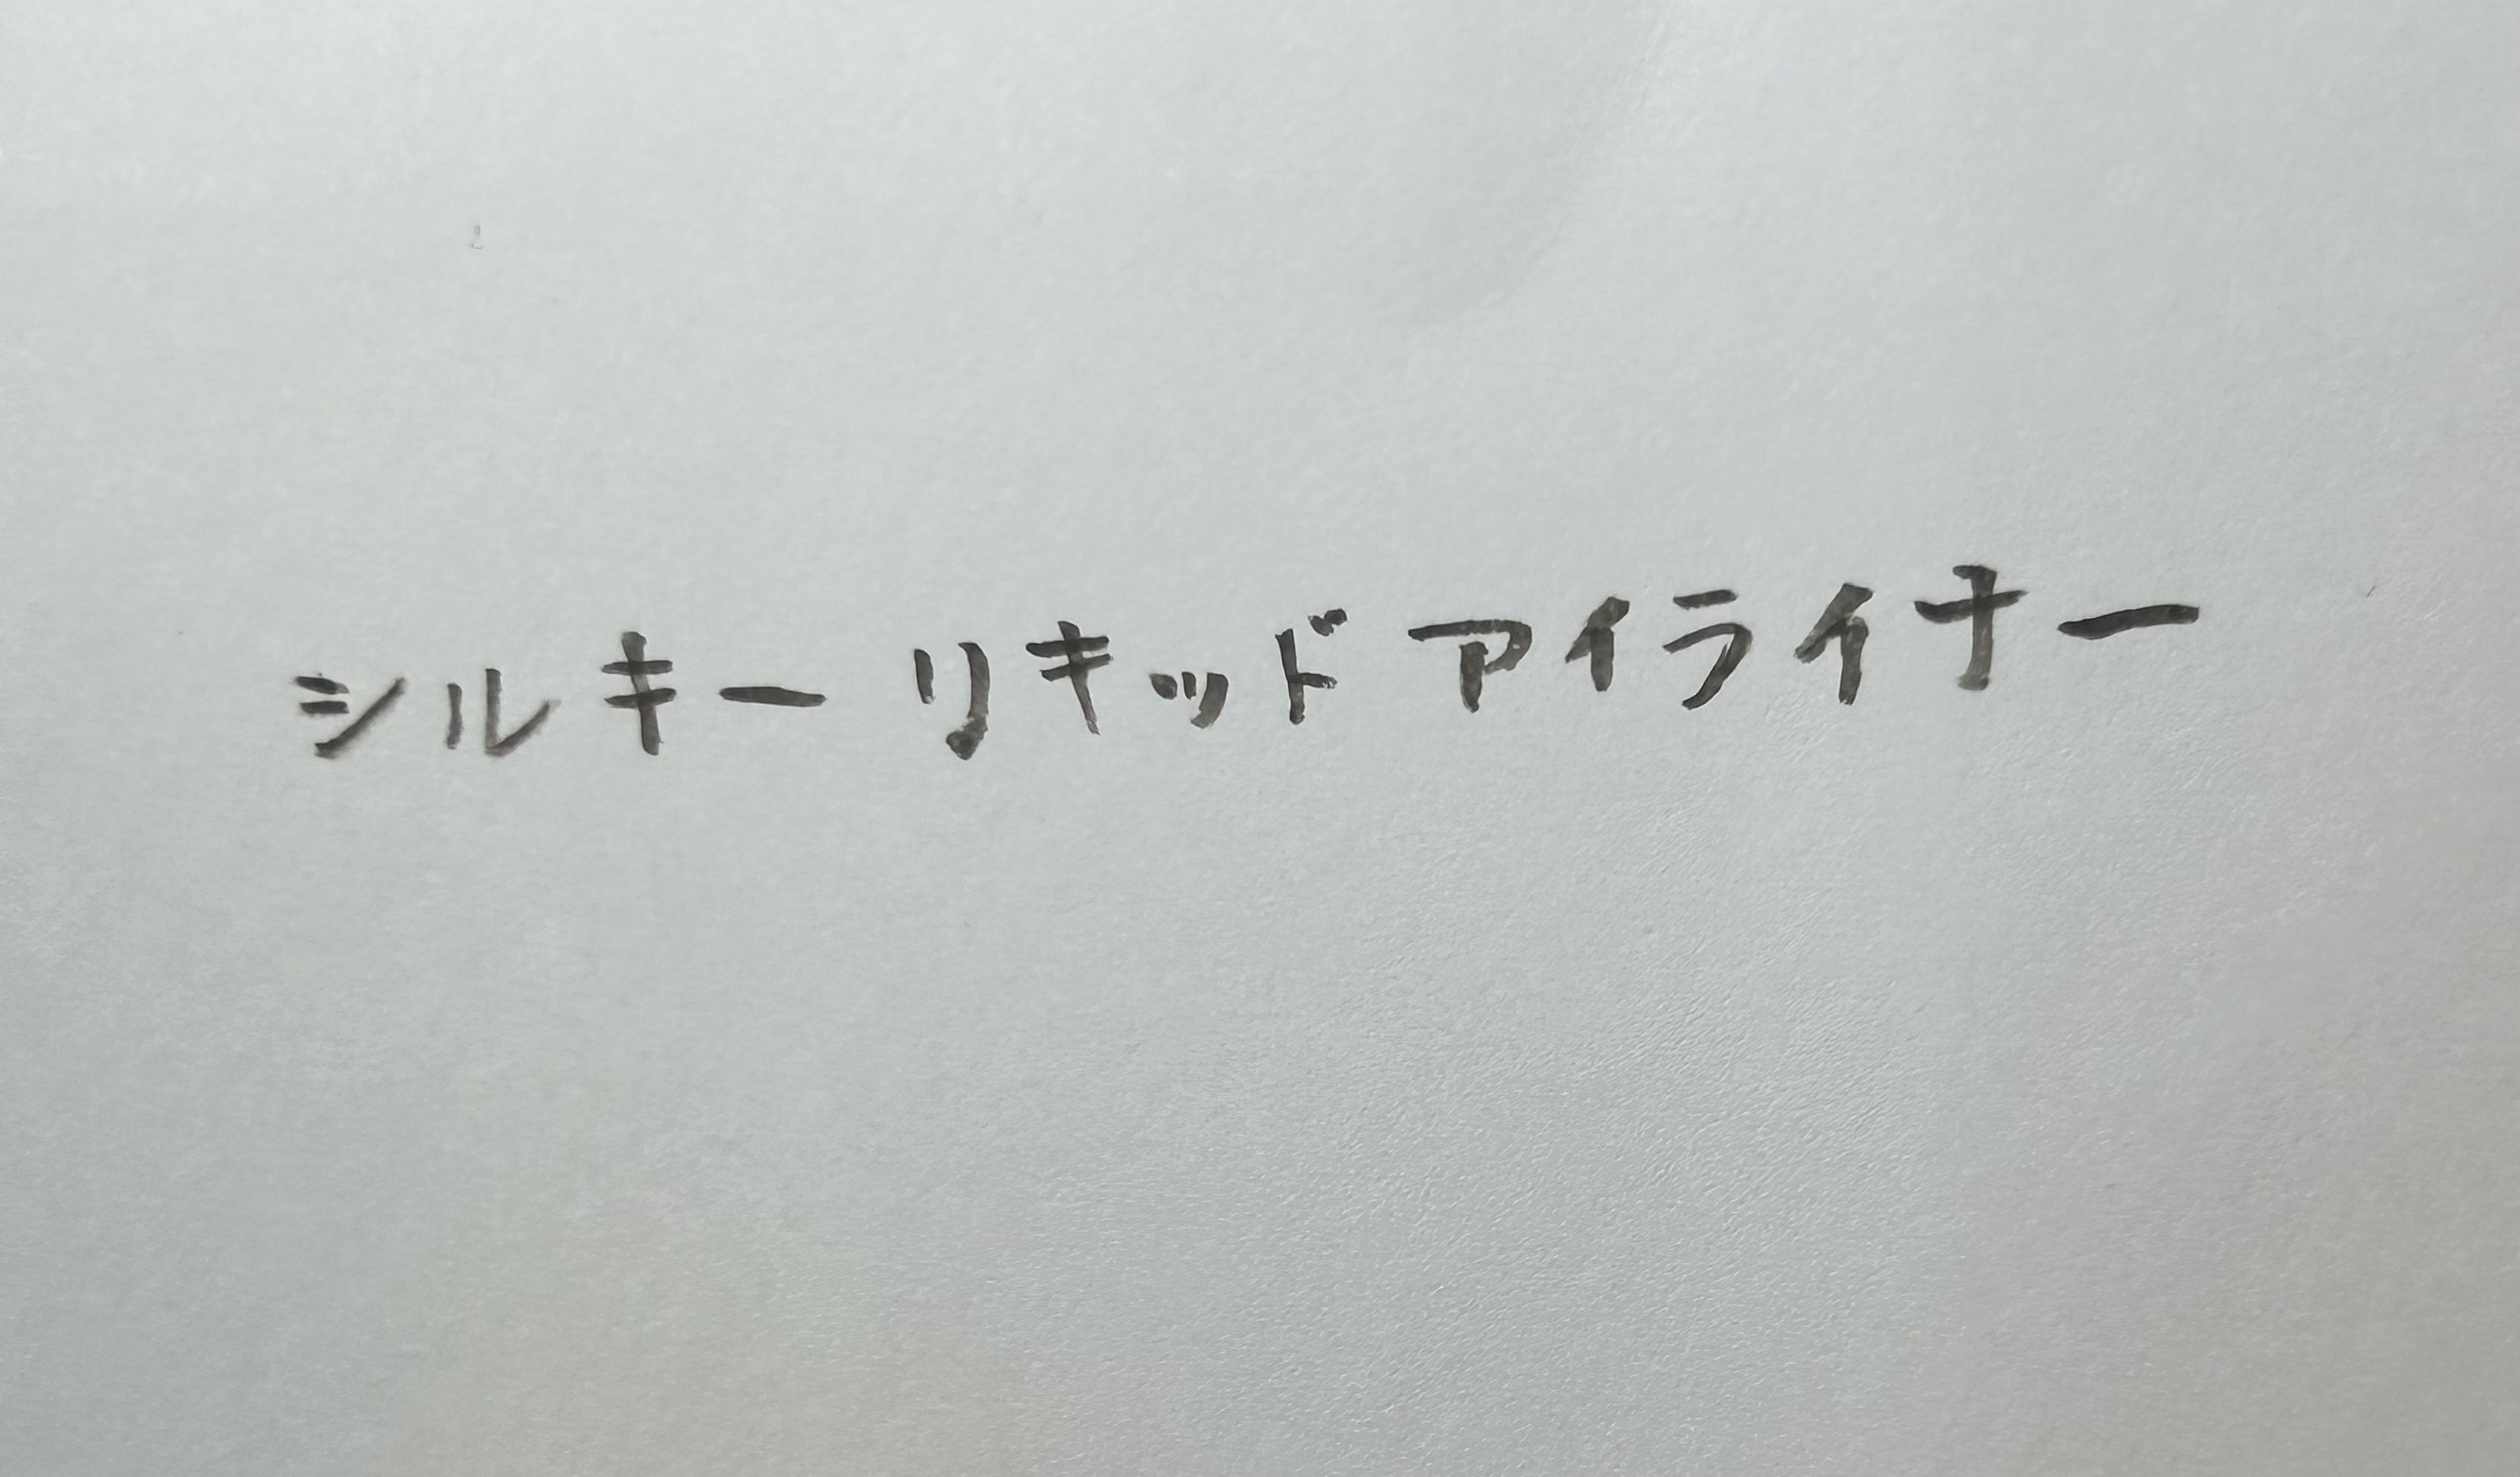 シルキーリキッドアイライナー